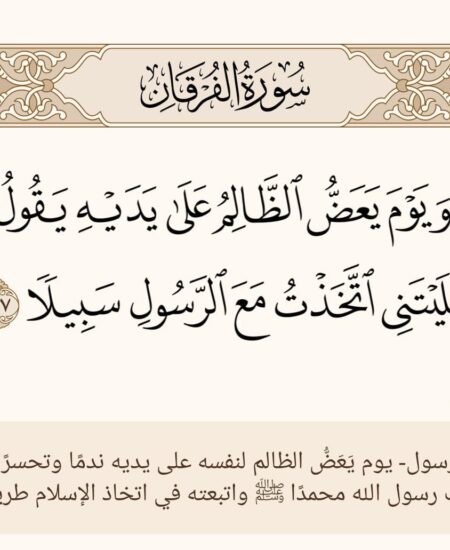 سُورَةُ الفُرْقَانِ
وَيَوْمَ يَعَضُّ ٱلظَّالِمُ عَلَىٰ يَدَيْهِ يَقُولُ
لَيْتَنِى ٱتَّخَذْتُ مَعَ ٱلرَّسُولِ سَبِيلًا
رسول- يوم يَعَضُّ الظالم لنفسه على يديه ندمًا وتحسرً
رسول الله محمدًا ﷺ واتبعته في اتخاذ الإسلام طري